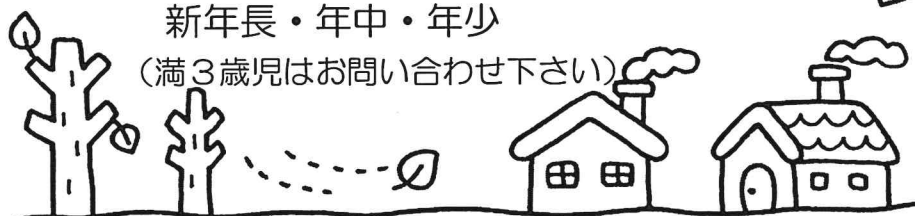 新年長・年中・年少
（満３歳児はお問い合わせ下さい）